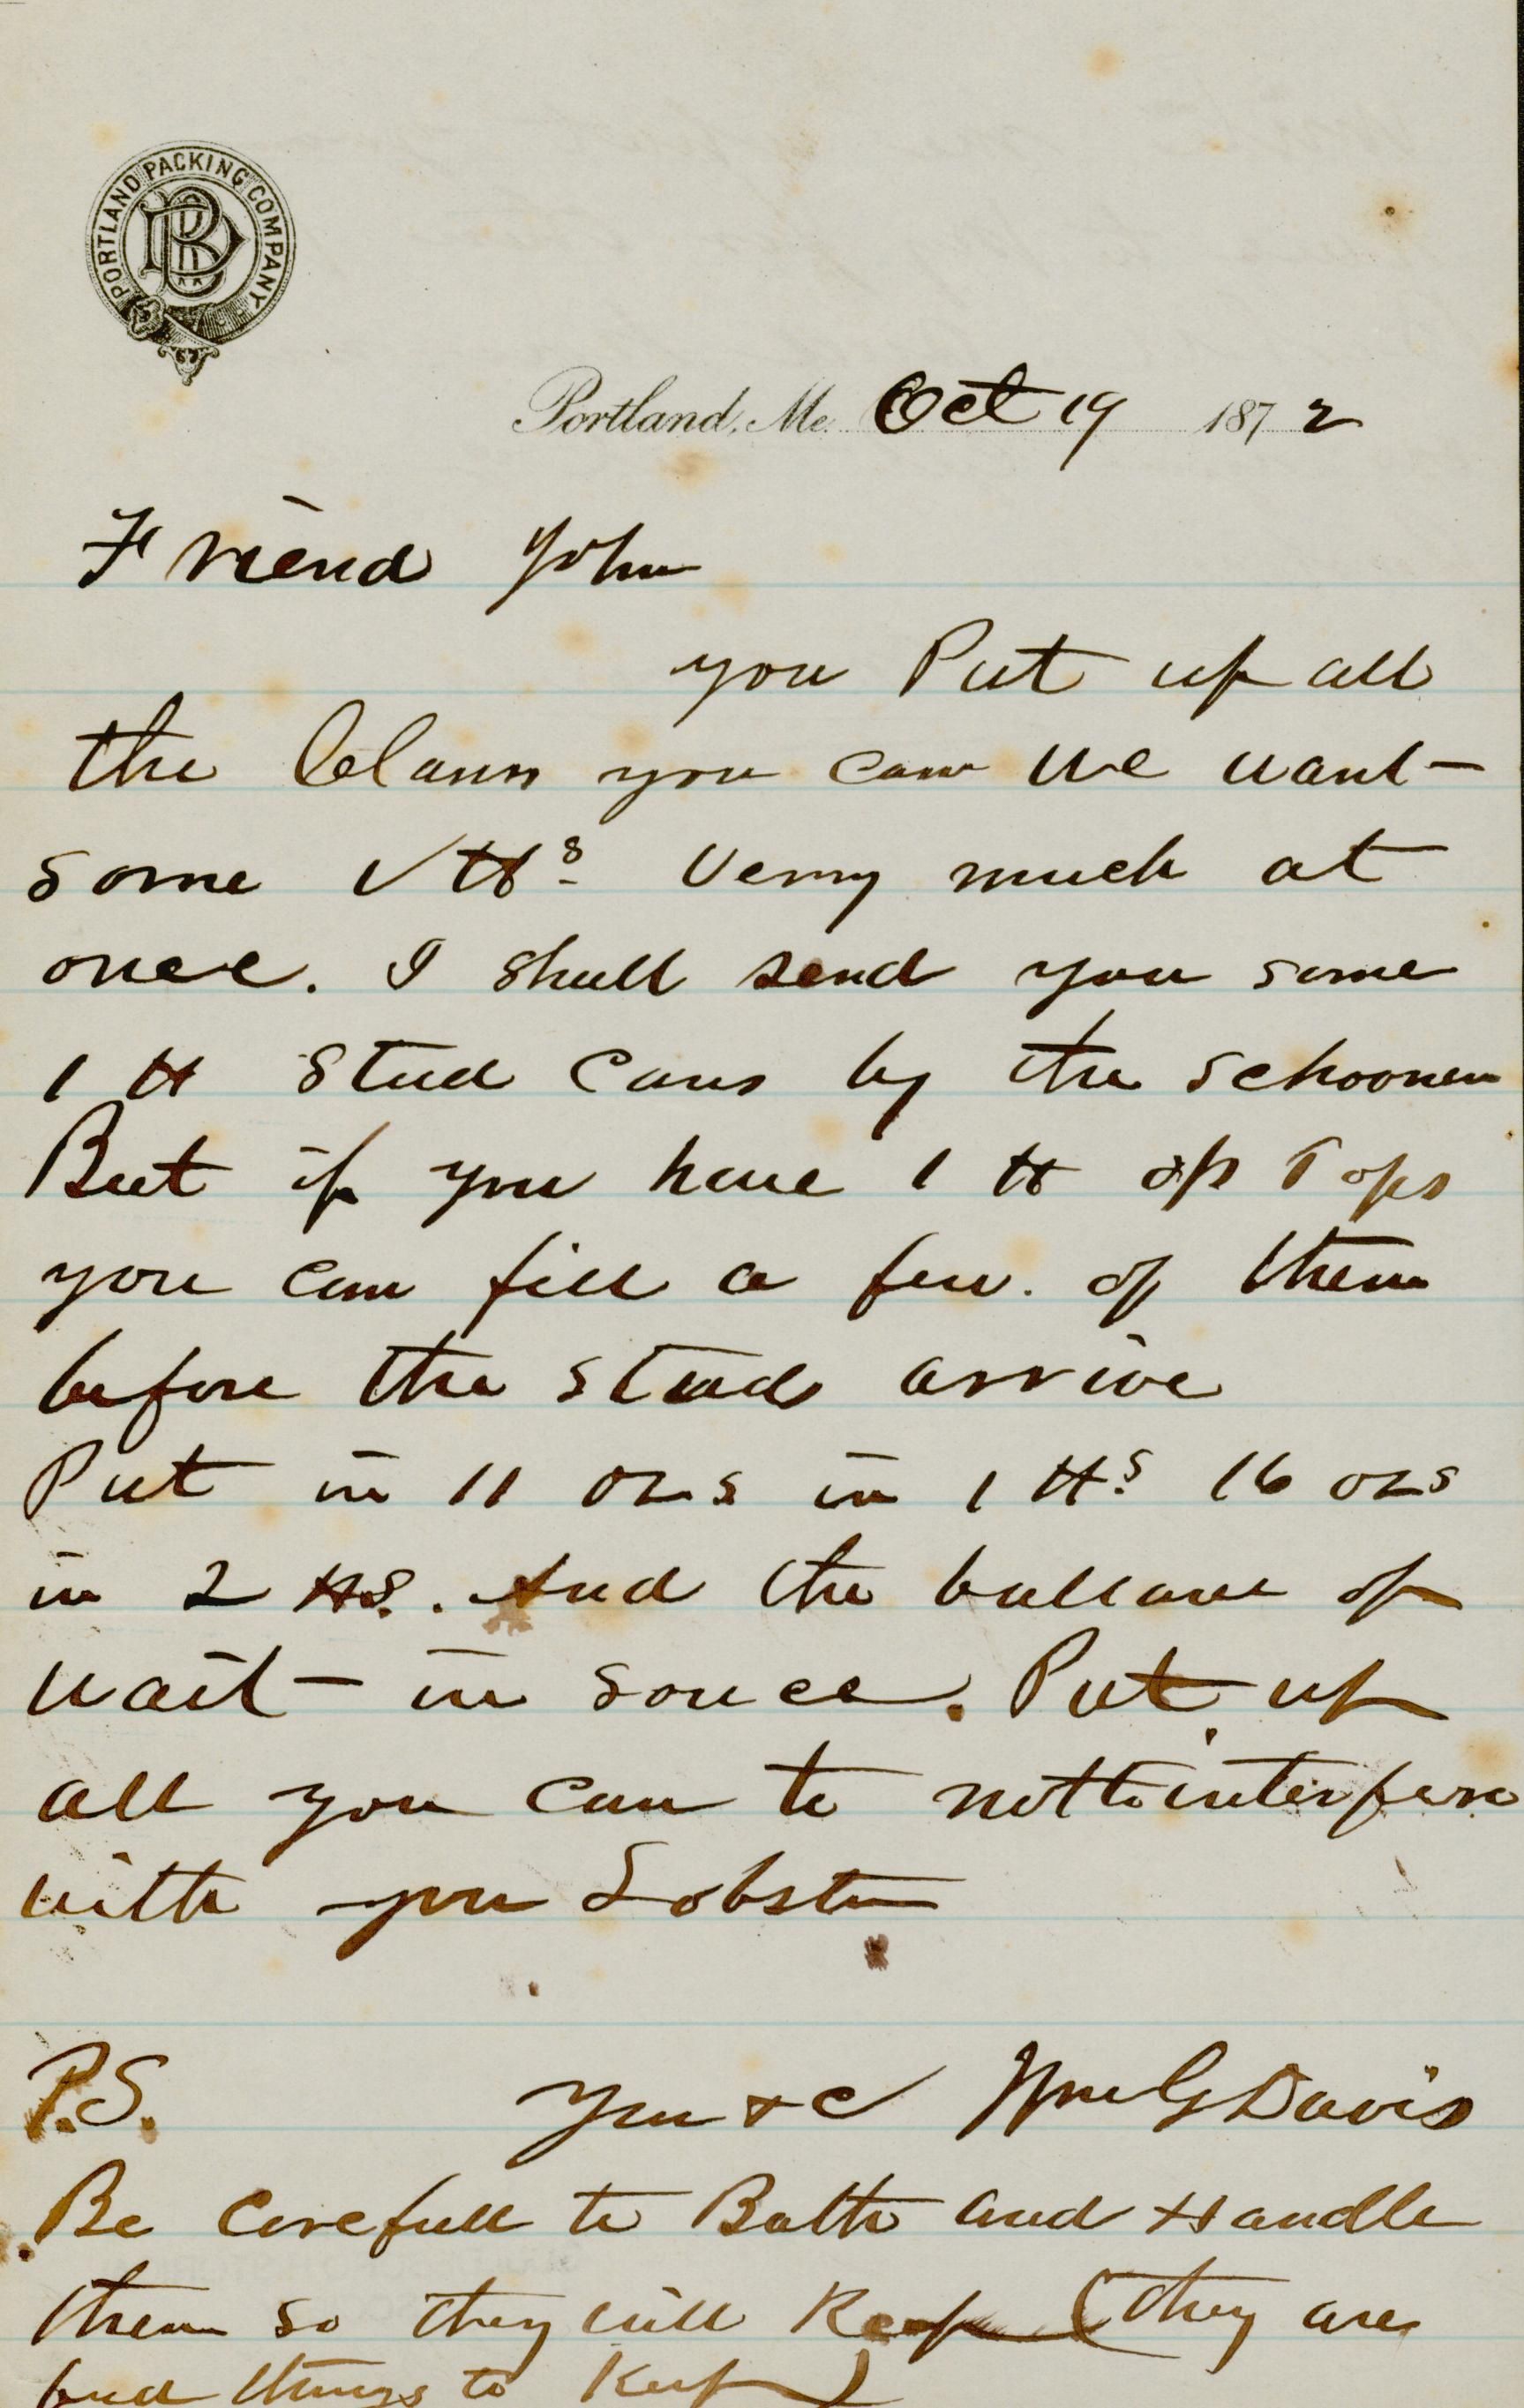 PORTLAND PACKING COMPANY
Portland, Me. Oct 19 1872
Friend John
you Put up all
the Clams you can we want
some 1 ℔s verry much at
once. I shall send you some
1 ℔ Stud Cans by the schooner
But if you have 1 ℔ op Tops
you can fill a few. of them
before the Studs arrive
Put in 11 ozs in 1 ℔s 16 ozs
in 2 ℔s. And the ballance of
wait in souce. Put up
all you can to not to interfere
with you Lobster
P.S.
You &c Wm G Davis
Be Carefull to Bath and Handle
them so they will Keep (they are
bad things to Keep)